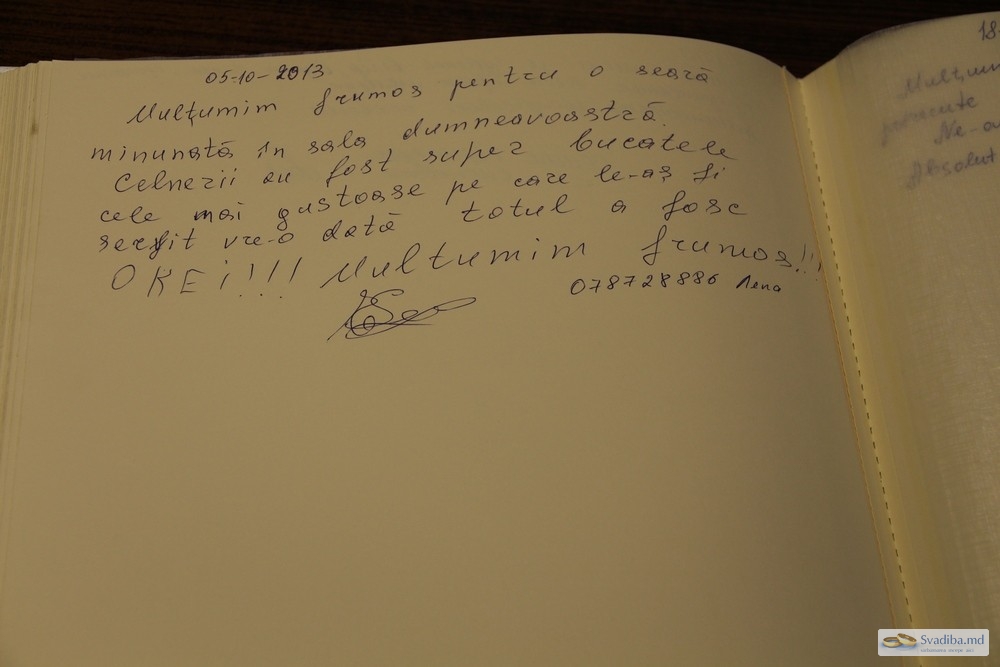 05-10-2013
Mulţumim frumos pentru o seară
minunată în sala dumneavoastră.
Celnerii au fost super bucatele
cele mai gustoase pe care le-aş fi
servit vre-o dată totul a fosc
OKEi!!! Multumim frumos!!!
078728886 Лена
18
Mulţum
Ne-a
Absolut
Svadiba.md